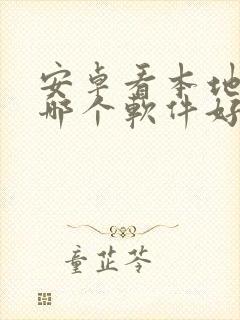 安卓看本地
哪个軟件好
童芷苓